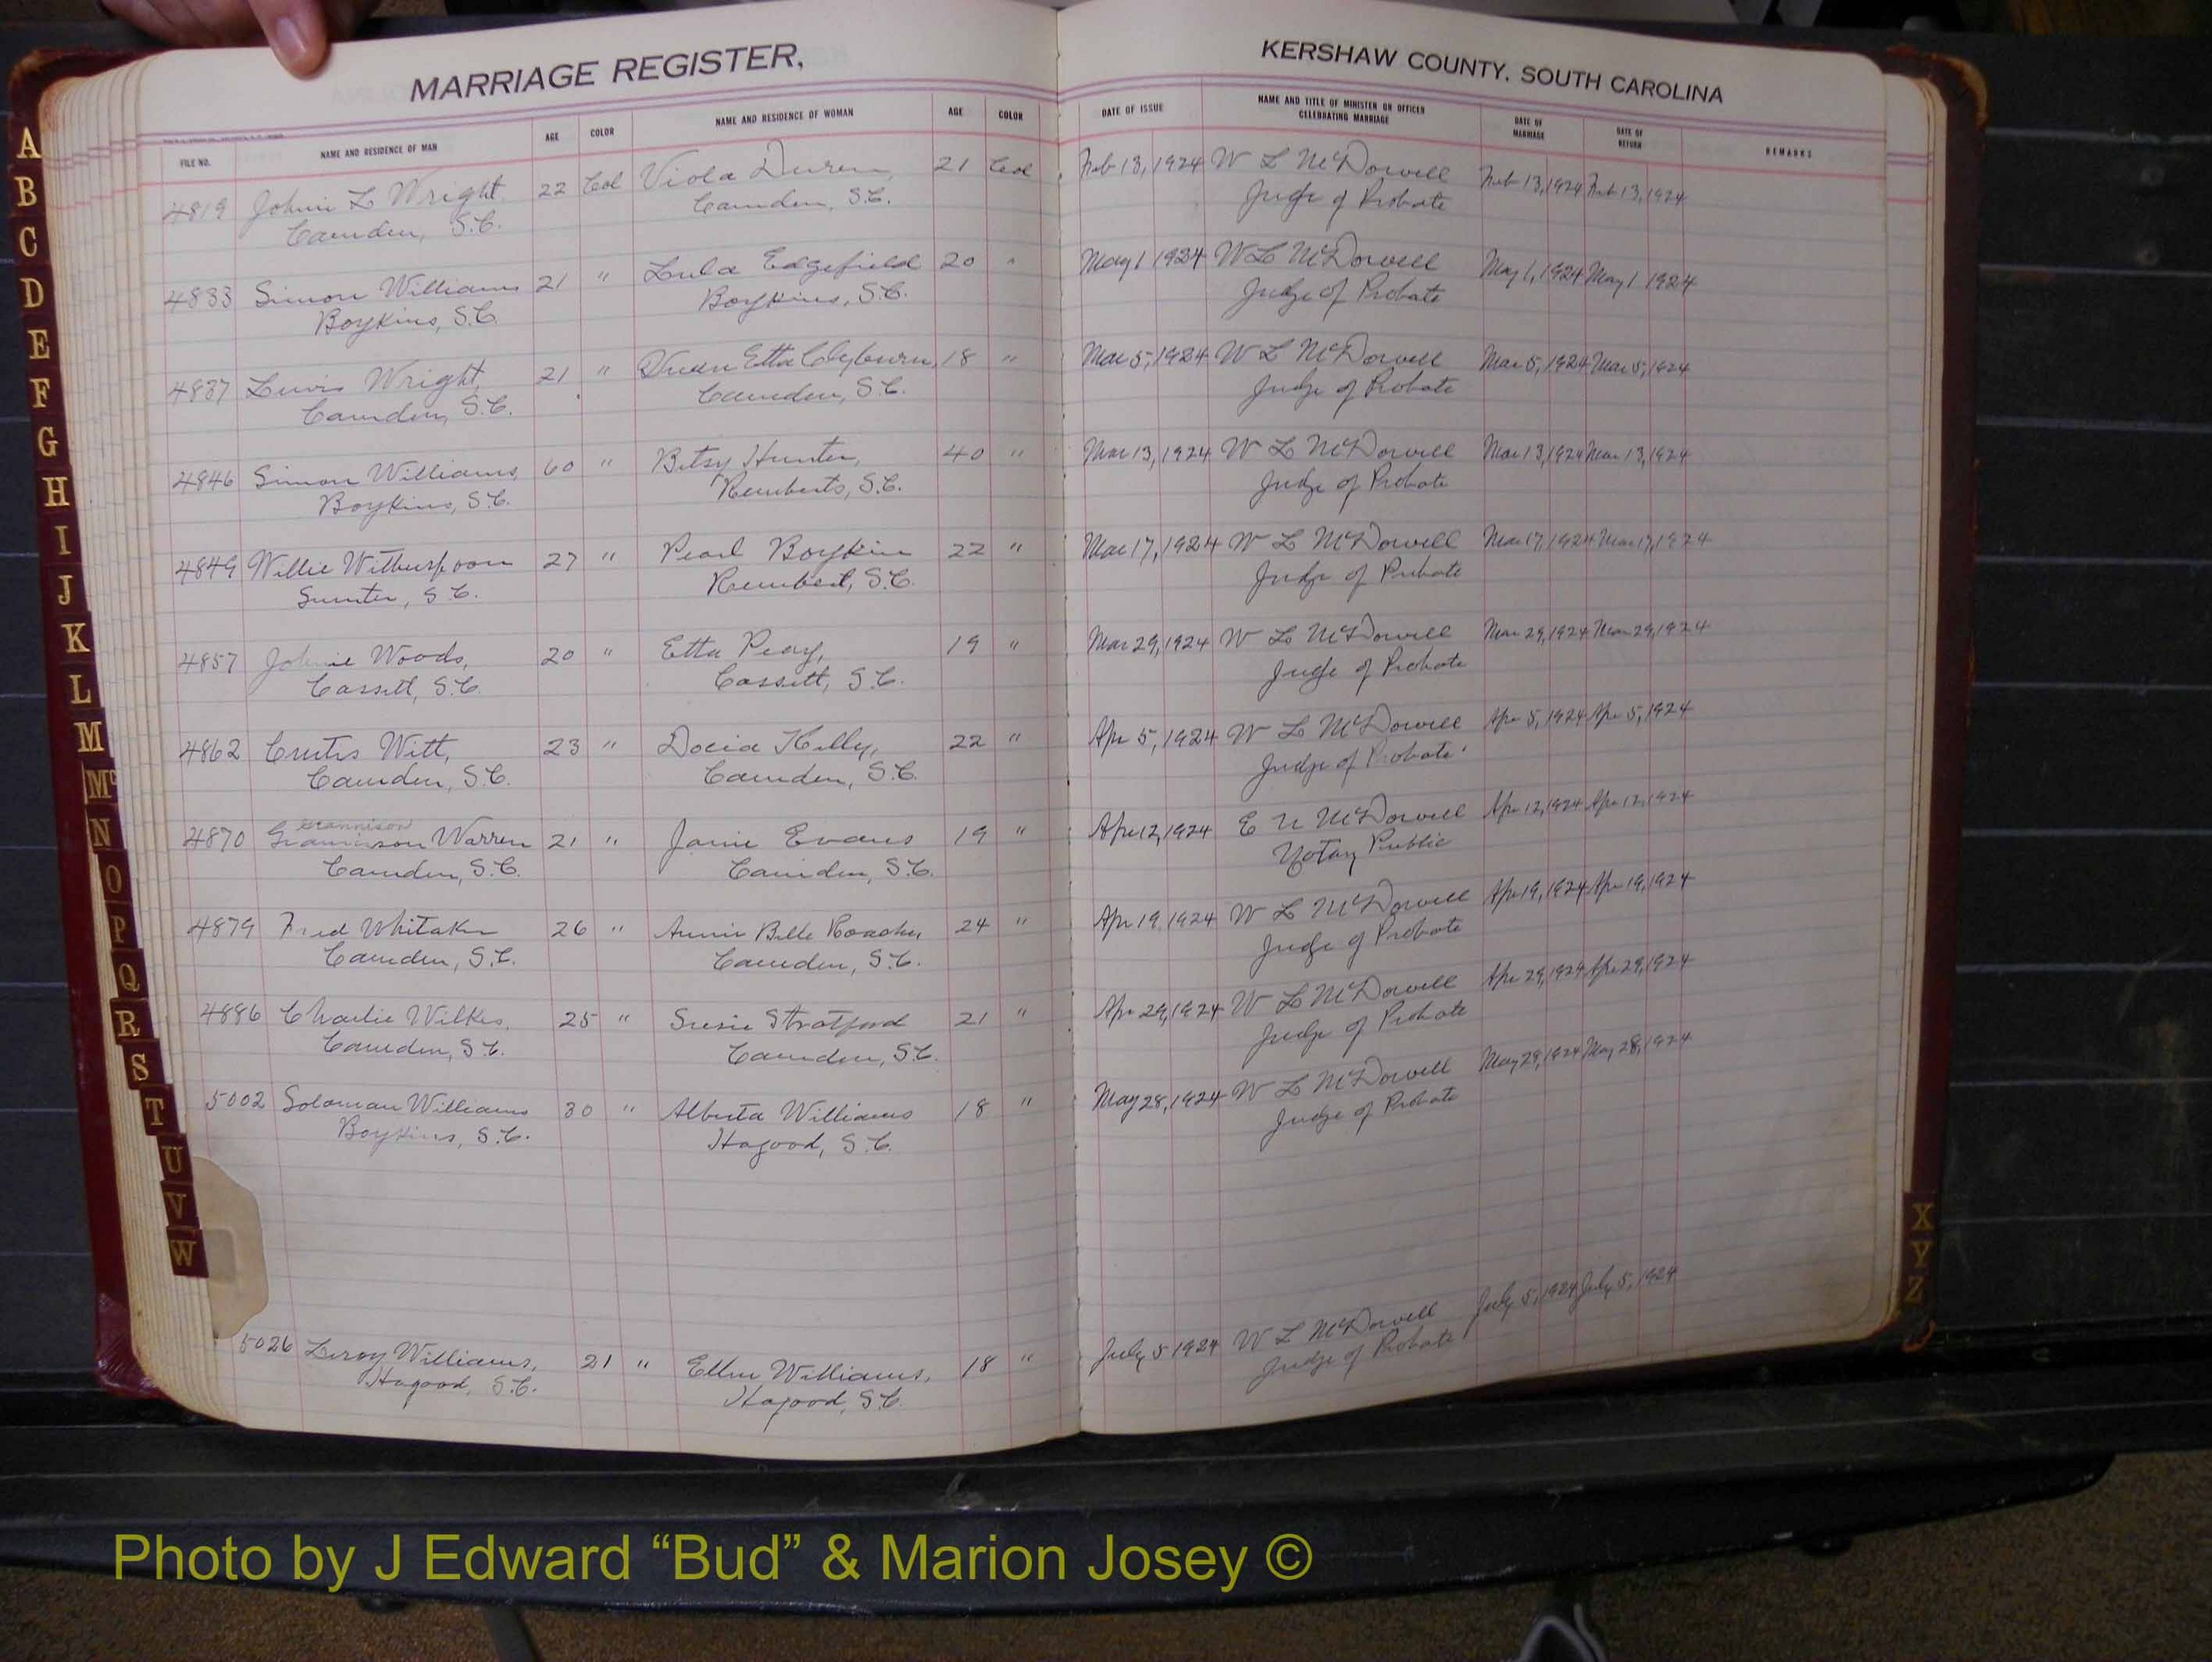 MARRIAGE REGISTER,
KERSHAW COUNTY, SOUTH CAROLINA
FILE NO. NAME AND RESIDENCE OF MAN AGE COLOR NAME AND RESIDENCE OF WOMAN AGE COLOR DATE OF ISSUE NAME AND TITLE OF MINISTER OR OFFICER CELEBRATING MARRIAGE DATE OF MARRIAGE DATE OF RETURN REMARKS
4819 Johnie L Wright, 22 Col Viola Duren, 21 Col Feb 13, 1924 W L McDowell Feb 13, 1924 Feb 13, 1924
Camden, S.C. Camden, S.C. Judge of Probate
4883 Simon Williams 21 " Lula Edgefield 20 " May 1 1924 W L McDowell May 1, 1924 May 1 1924
Boykins, S.C. Boykins, S.C. Judge of Probate
4837 Lewis Wright, 21 " Queen Etta Clyburn, 18 " Mar 5, 1924 W L McDowell Mar 5, 1924 Mar 5, 1924
Camden, S.C. Camden, S.C. Judge of Probate
4846 Simon Williams, 60 " Betsy Hunter, 40 " Mar 13, 1924 W L McDowell Mar 13, 1924 Mar 13, 1924
Boykins, S.C. Remberts, S.C. Judge of Probate
4849 Willie Witherspoon 27 " Pearl Boykin 22 " Mar 17, 1924 W L McDowell Mar 17, 1924 Mar 17, 1924
Sumter, S.C. Rembert, S.C. Judge of Probate
4857 Johnie Woods, 20 " Etta Peay, 19 " Mar 29, 1924 W L McDowell Mar 29, 1924 Mar 29, 1924
Cassett, S.C. Cassett, S.C. Judge of Probate
4862 Crutis Witt, 23 " Docia Kelly, 22 " Apr 5, 1924 W L McDowell Apr 5, 1924 Apr 5, 1924
Camden, S.C. Camden, S.C. Judge of Probate
Grannison
4870 Warren 21 " Janie Evans 19 " Apr 12, 1924 E N McDowell Apr 12, 1924 Apr 12, 1924
Camden, S.C. Camden, S.C. Notary Public
4879 Fred Whitaker 26 " Annie Belle 24 " Apr 19, 1924 W L McDowell Apr 19, 1924 Apr 19, 1924
Camden, S.C. Camden, S.C. Judge of Probate
4886 Charlie Wilkes, 25 " Susie Stratford 21 " Apr 29, 1924 W L McDowell Apr 29, 1924 Apr 29, 1924
Camden, S.C. Camden, S.C. Judge of Probate
5002 Soloman Williams 30 " Alberta Williams 18 " May 28, 1924 W L McDowell May 29, 1924 May 28, 1924
Boykins, S.C. Hagood, S.C. Judge of Probate
5026 Leroy Williams, 21 " Ellen Williams, 18 " July 5 1924 W L McDowell July 5, 1924 July 5, 1924
Hagood, S.C. Hagood, S.C. Judge of Probate
A
B
C
D
E
F
G
H
I
J
K
L
M
Mc
N
O
P
Q
R
S
T
U
V
W
X
Y
Z
Photo by J Edward “Bud” & Marion Josey ©